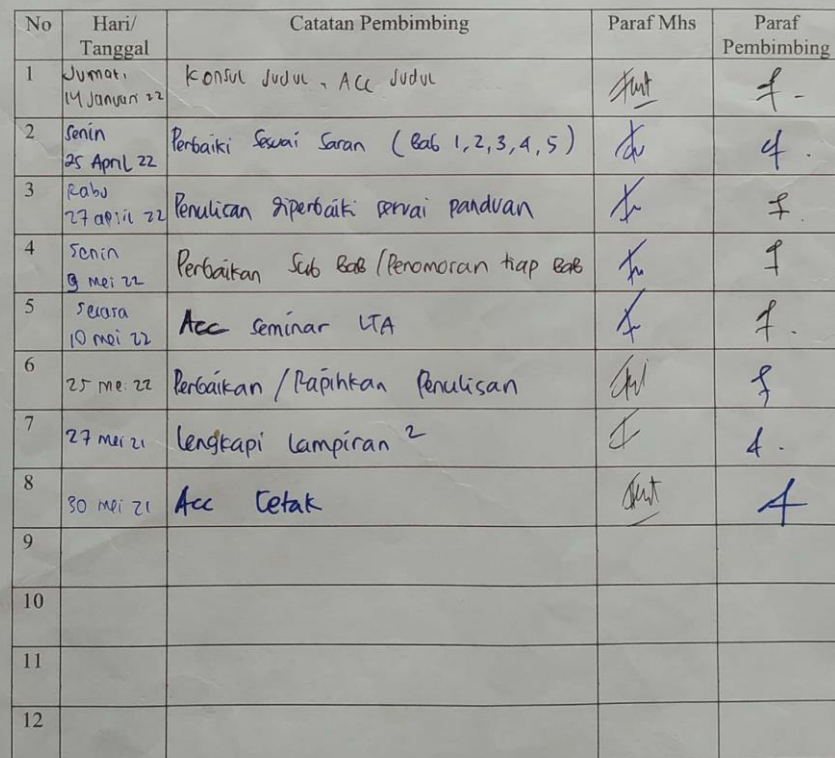 No Hari/ Tanggal Catatan Pembimbing Paraf Mhs Paraf Pembimbing
1 Jumat, 14 Januari 22 Konsul Judul, Acc Judul
2 Senin 25 April 22 Perbaiki Sesuai Saran (Bab 1,2,3,4,5)
3 Rabu 27 april 22 Penulisan diperbaiki sesuai panduan
4 Senin 9 mei 22 Perbaikan Sub Bab / Penomoran tiap Bab
5 10 mei 22 Acc Seminar LTA
6 25 mei 22 Perbaikan / Rapihkan Penulisan
7 27 mei 21 Lengkapi Lampiran 2
8 30 mei 21 Acc Cetak
9
10
11
12